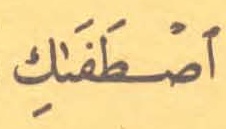 ٱصْطَفَىٰكِ